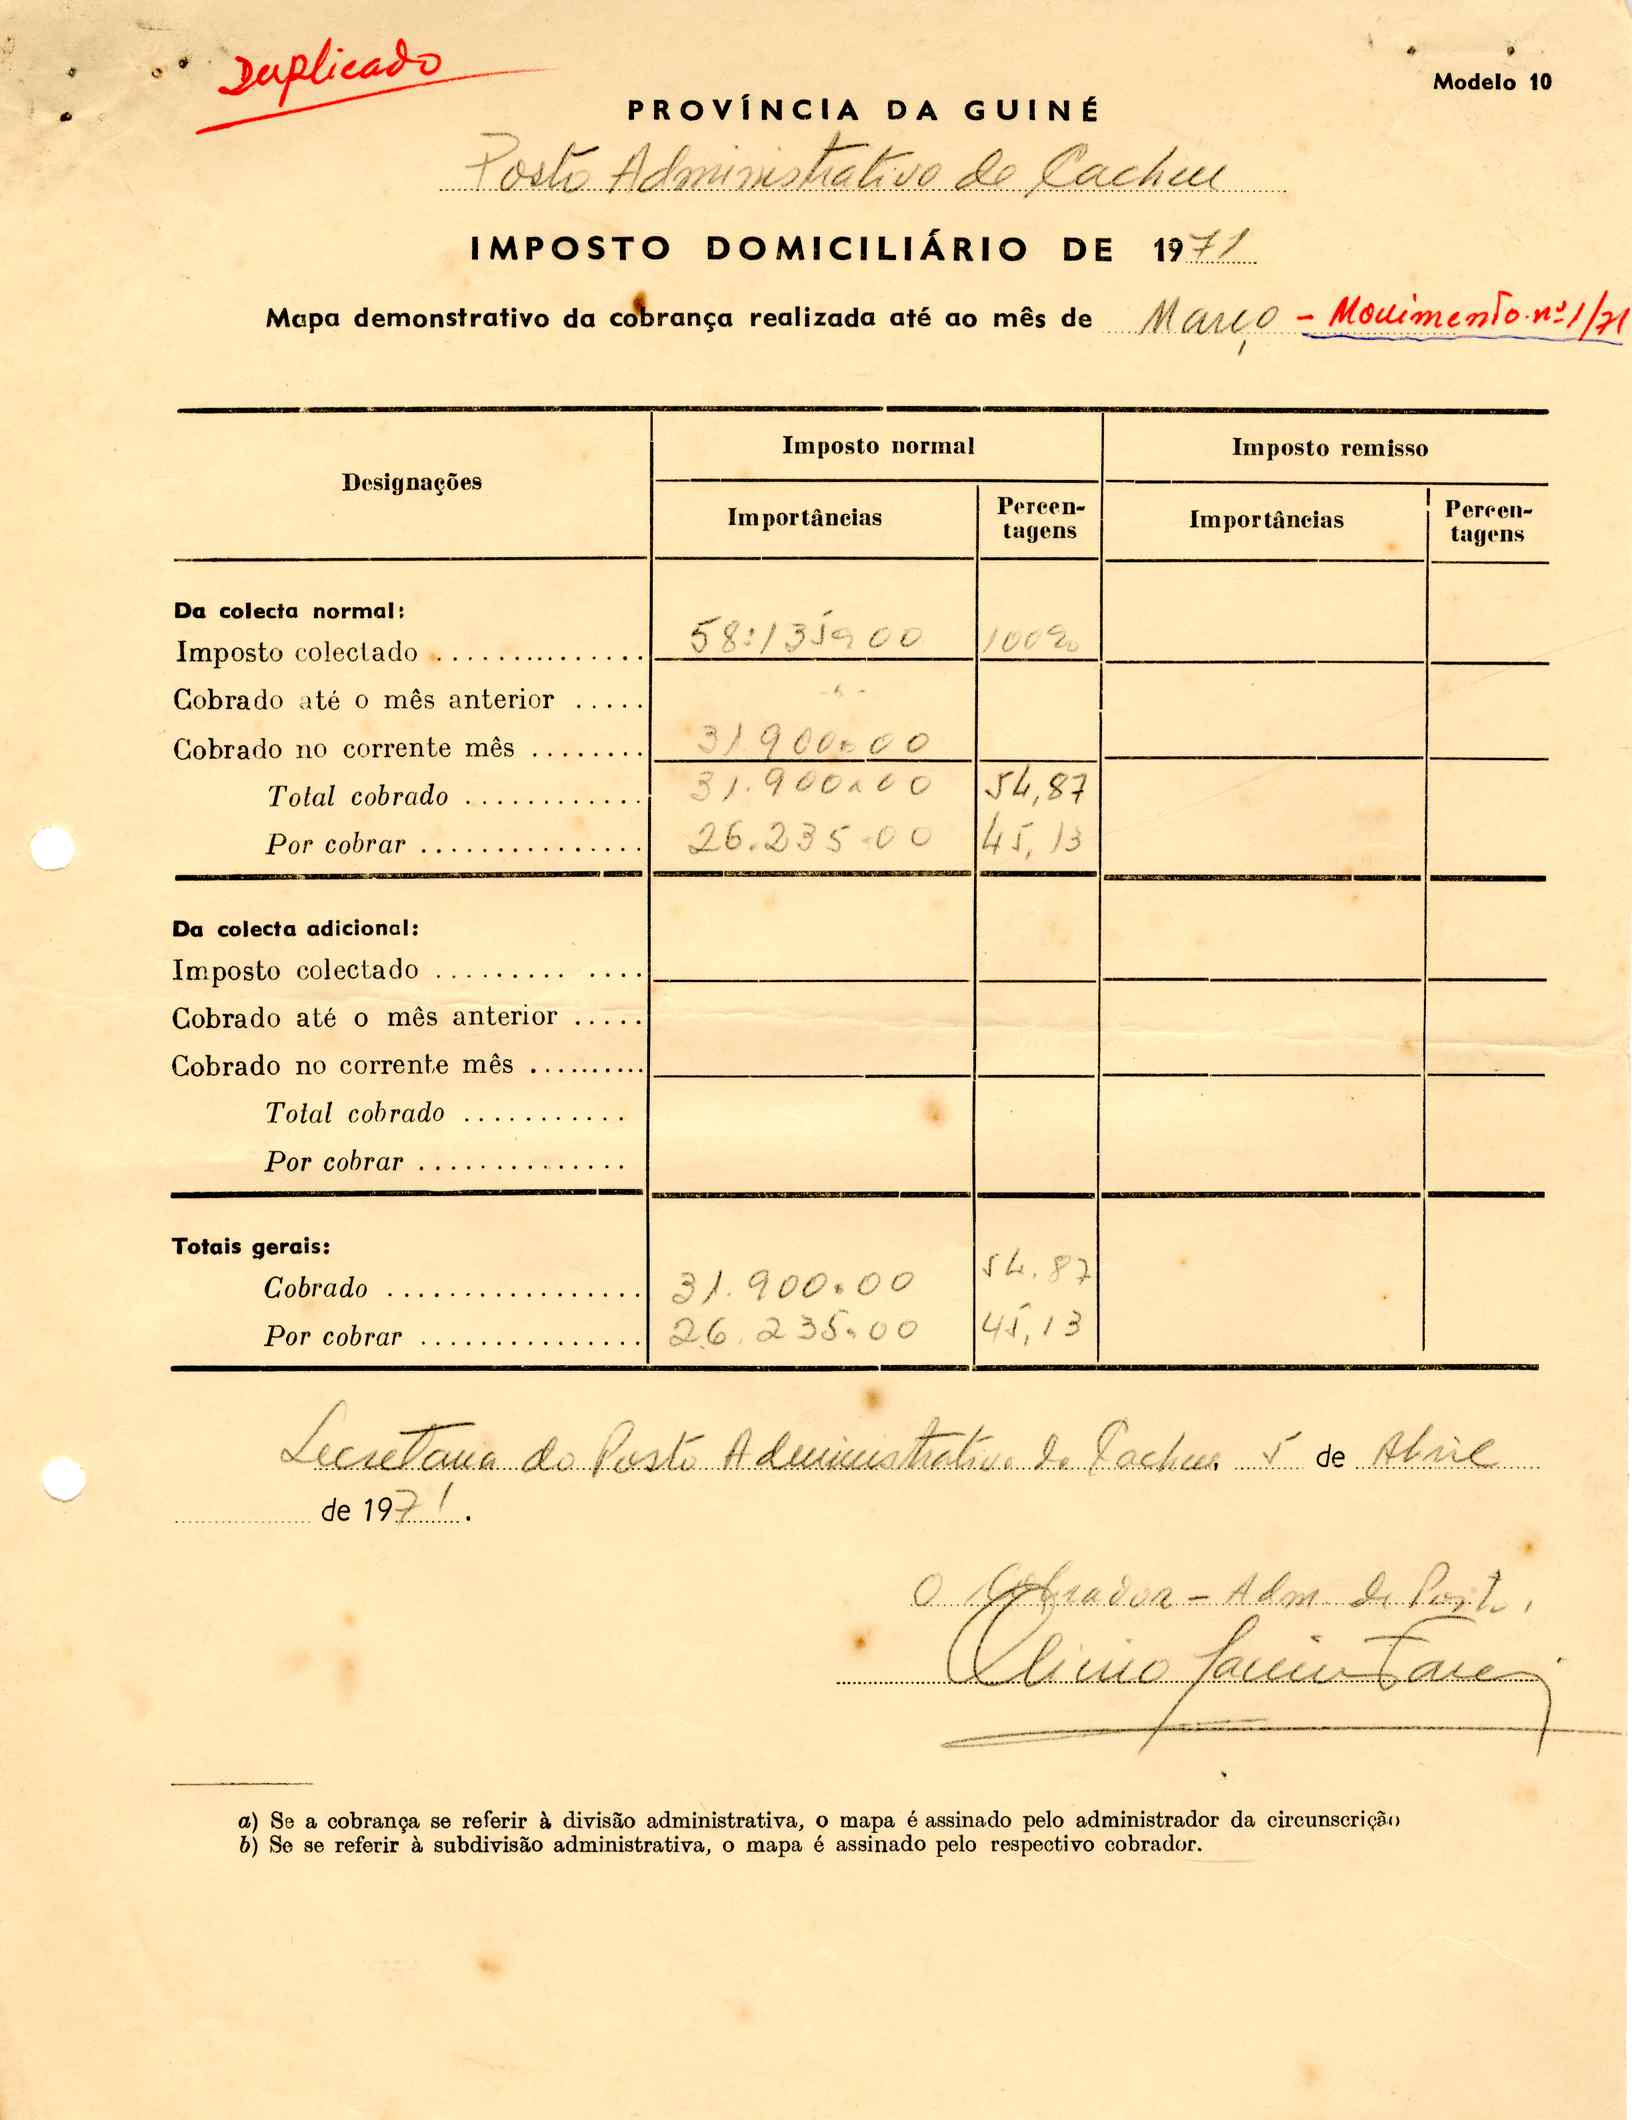 Duplicado
Modelo 10
PROVÍNCIA DA GUINÉ
Posto Administrativo de Cacheu
IMPOSTO DOMICILIÁRIO DE 1971
Mapa demonstrativo da cobrança realizada até ao mês de Março - Movimento nº 1/71
Designações
Imposto normal
Imposto remisso
Importâncias
Percen-
tagens
Importâncias
Percen-
tagens
Da colecta normal:
Imposto colectado ............... 58:135$00 100%
Cobrado até o mês anterior ..... -"-
Cobrado no corrente mês ........ 31.900$00
Total cobrado ............ 31.900$00 54,87
Por cobrar ............... 26.235$00 45,13
Da colecta adicional:
Imposto colectado ......... ....
Cobrado até o mês anterior .....
Cobrado no corrente mês ..........
Total cobrado ...........
Por cobrar ..............
Totais gerais:
Cobrado ................. 31.900$00 54.87
Por cobrar ............... 26.235$00 45,13
Secretaria do Posto Administrativo de Cacheu, 5 de Abril
de 1971.
O Cobrador - Adm. de Posto,
a) Se a cobrança se referir à divisão administrativa, o mapa é assinado pelo administrador da circunscrição
b) Se se referir à subdivisão administrativa, o mapa é assinado pelo respectivo cobrador.